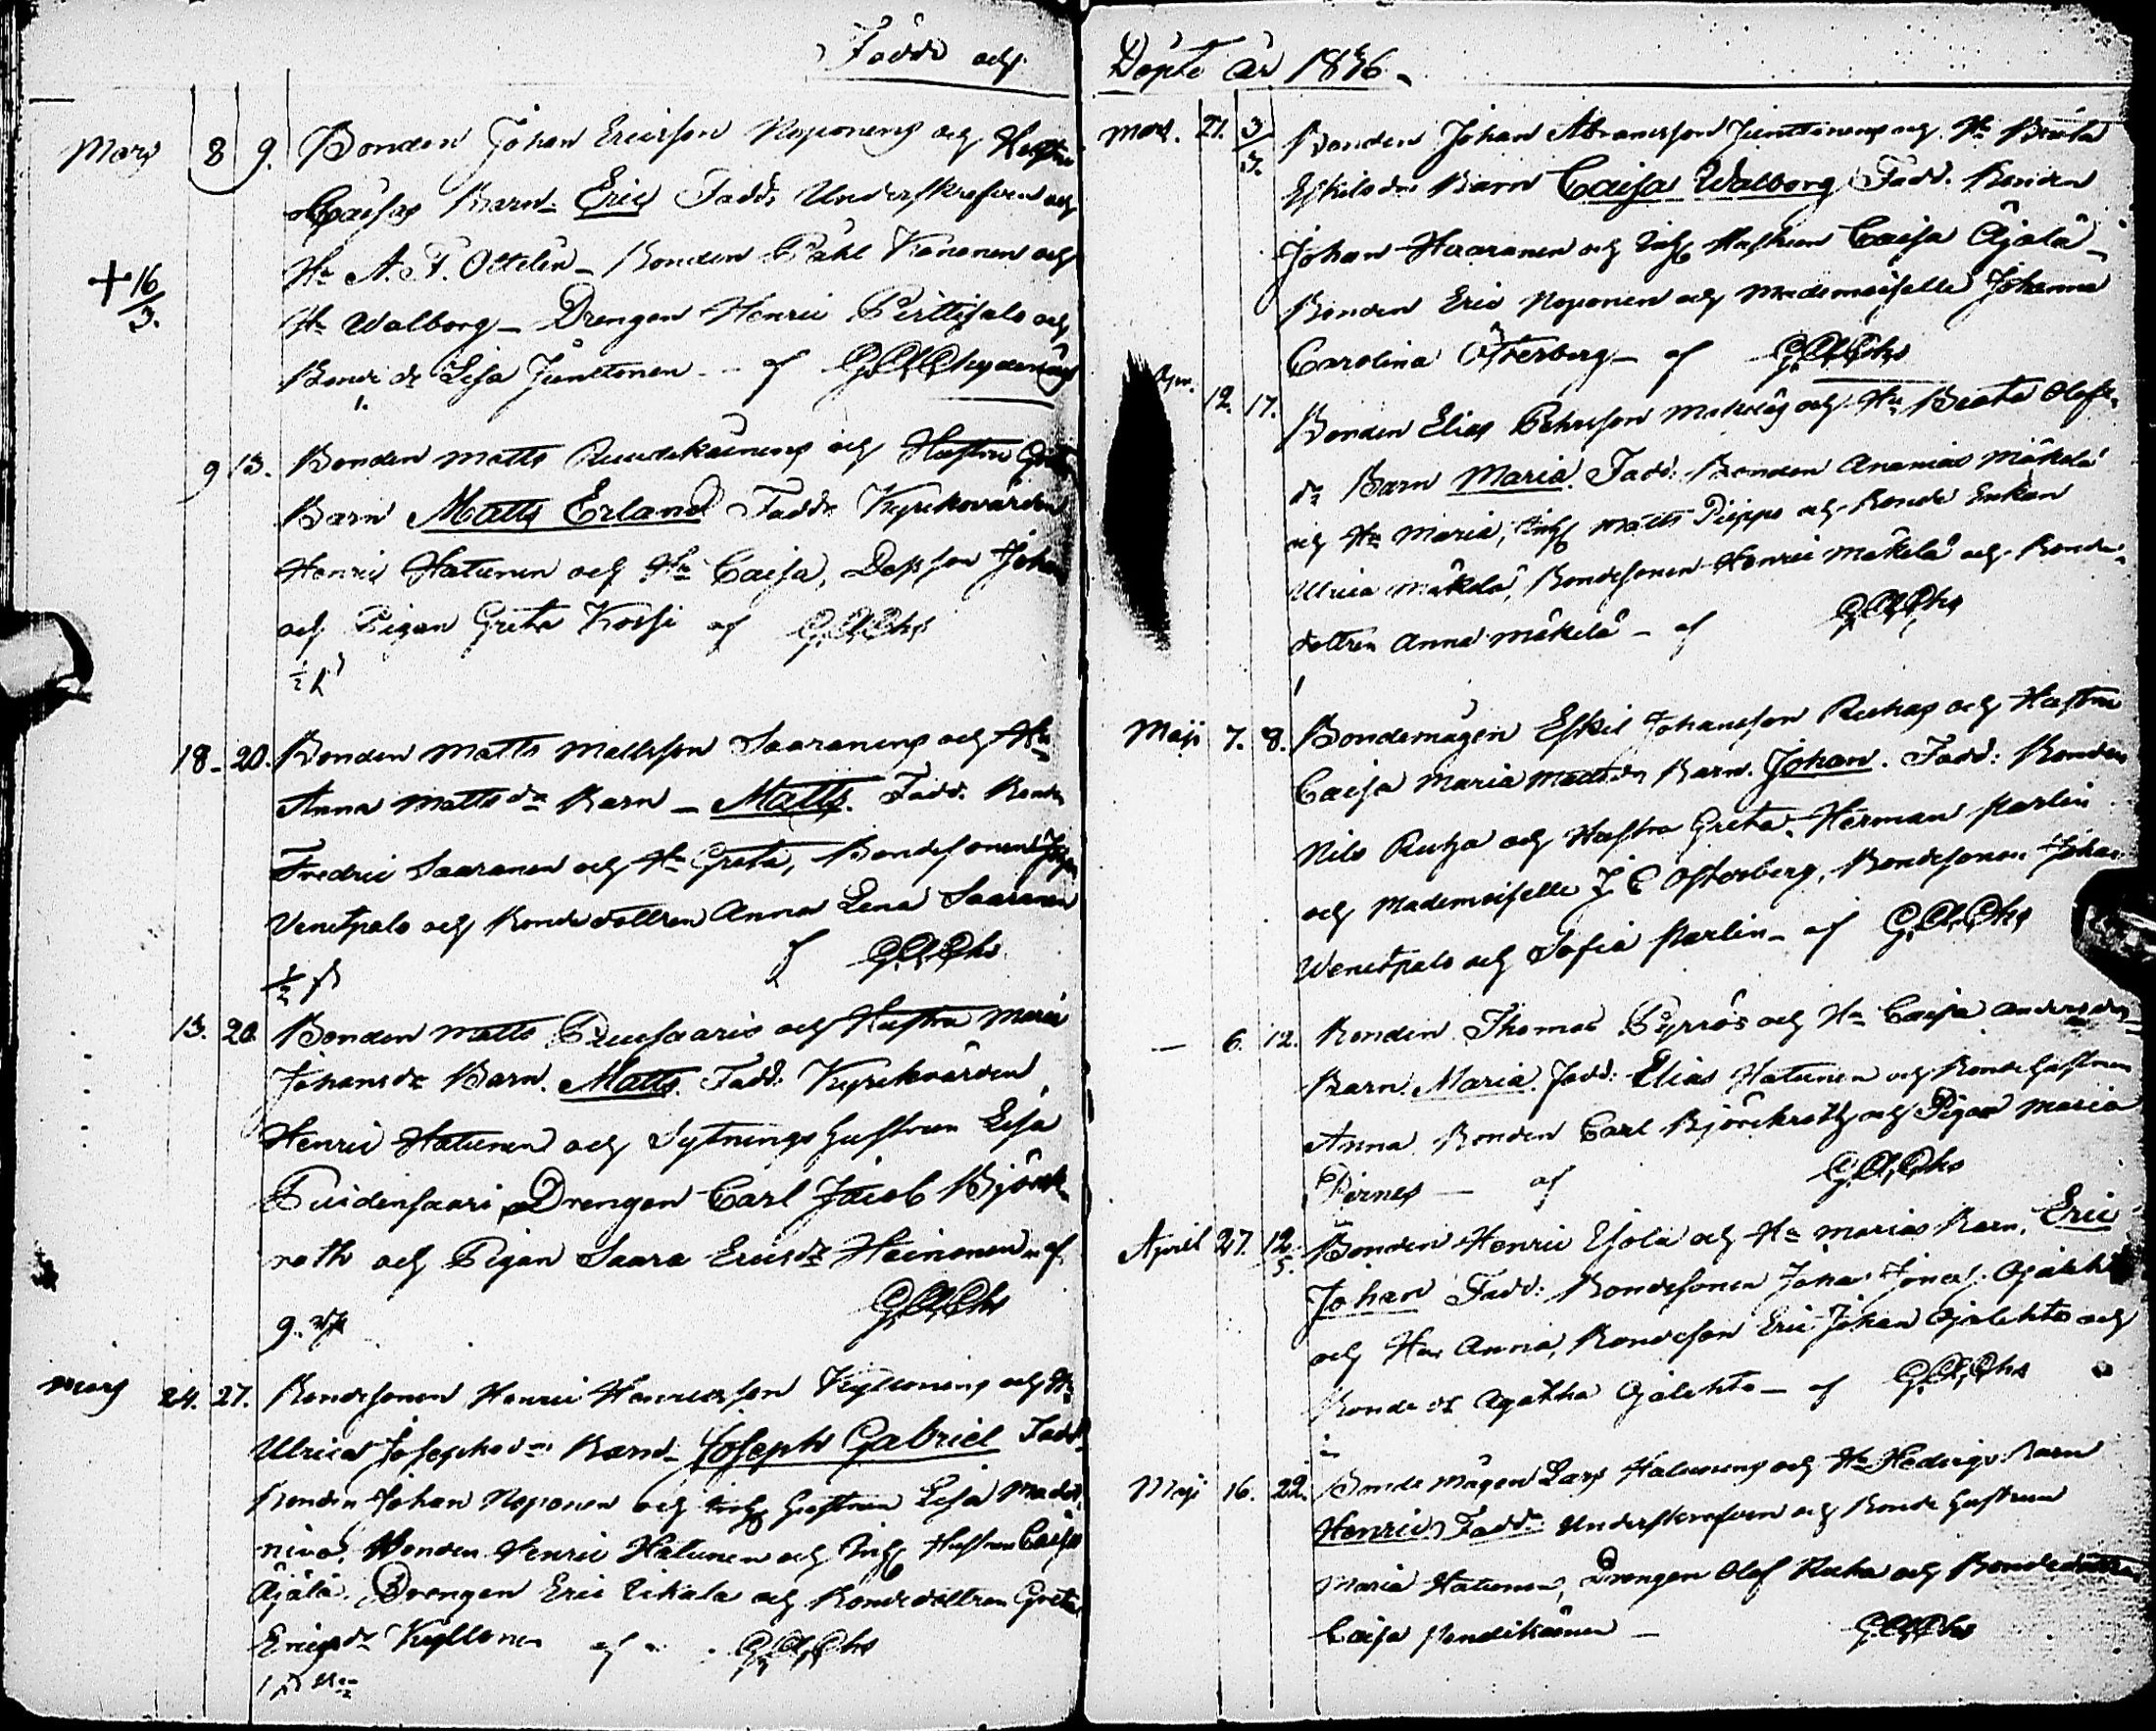 Födde och
Mars 8 9. Bonden Johan Ericsson Noponens och Hustru
Caisas Barn Eric Fadd. Underskrefven och
Hu A. F. Ottelin Bonden Påhl Kononen och
+ 16/3. Hu Walborg – Drengen Henric Pirttisalo och
Bonde dr Lisa Junttonen – af G.A. Chydenius
1.
9 13. Bonden Matts Hustru Greta
Barn Matts Erland Fadd. Kyrkovärden
Henric Hatunen och Hu Caisa, Johan
och Pigan Greta Kossi af G.A.Chs
1/2
18 – 20. Bonden Matts Mattsson Saaranens och Hu
Anna Mattsdr Barn – Matts. Fadd. Bonden
Fredric Saaranen och Hu Greta, Bondesonen
Venetpalo och Bondedottren Anna Lena Saaranen
af G.A.Chs
1/2
13. 20. Bonden Matts och Hustru Maria
Johansdr Barn. Matts. Fadd: Kyrkvärden
Henric Hatunen och Sytnings hustrun Lisa
Drengen Carl Jacob Björk-
roth och Pigan Saara Ericsdr Heinonen – af
G.A.Chs
9.
Mars 24. 27. Bondesonen Henric Henricsson Kyllönens och Hu
Ulrica Josephsdr Barn – Joseph Gabriel Fadd.
Bonden Johan Noponen och Inh hustrun Lisa Made-
niva, Bonden Henric Hatunen och Inh Hustrun Caisa
Äjälä. Drengen Eric och Bondedottren Greta
Ericsdr Kyllönen af G.A.Chs
1
Döpte år 1836
Mars. 21. 3/5. Bonden Johan Abramsson Junttonens och Hu Beata
Eskilsdrs Barn Caisa Walborg Fadd. Bonden
Johan Haaranen och Inh Hustrun Caisa Äjälä –
Bonden Eric Noponen och Mademoiselle Johanna
Carolina Österberg – af G.A.Chs
Apr. 12. 17. Bonden Elias Pehrsson Mäkeläs och Hu Beata Olofs-
dr Barn Maria. Fadd: Bonden Ananias Mäkelä
och Hu Maria, Inh Matts Pieppo och Bonde Enkan
Ulrica Mäkelä, Bondesonen Henric Mäkelä och Bonde-
dottren Anna Mäkelä – af G.A.Chs
1
Maji 7. 8. Bondemågen Eskil Johansson Ruhas och Hustru
Caisa Maria Mattsdr Barn. Johan. Fadd: Bonden
Nils Ruha och Hustru Greta. Herman
och Mademoiselle J C Österberg, Bondesonen Johan
Wenetpalo och Sofia – af G.A.Chs
– 6. 12. Bonden Thomas Pyrrös och Hu Caisa Andersdrs
Barn. Maria. Fadd: Elias Hatunen och Bondehustrun
Anna Bonden Carl Björckroth och Pigan Maria
Pirnes – af G.A.Chs
April 27. 12/5. Bonden Henric Esola och Hu Marias Barn. Eric
Johan Fadd: Bondesonen Johan
och Hu Anna, Bondeson Eric Johan Ojalehto och
Bonde dr Agatha Ojalehto – af G.A.Chs
Maji 16. 22. Bonde Mågen Lars Halunens och Hu Hedvigs Barn
Henric. Fadd: Underskrefven och Bonde hustrun
Maria Hatunen, Drengen Olof Ruha och Bondedottren
Caisa – G.A.Chs